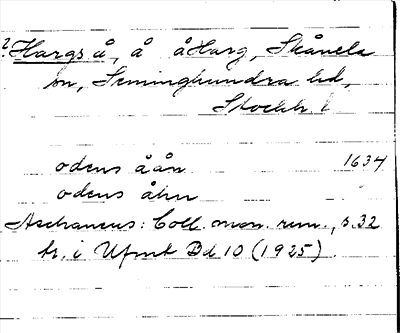 ? Hargs å, å å Harg, Skånela
sn, Seminghundra hd,
Stockh. l
odens åån 1634
odens åhn
Aschaneus: Coll. mon. run., s. 32
tr. i Ufmt Bd 10 (1925)